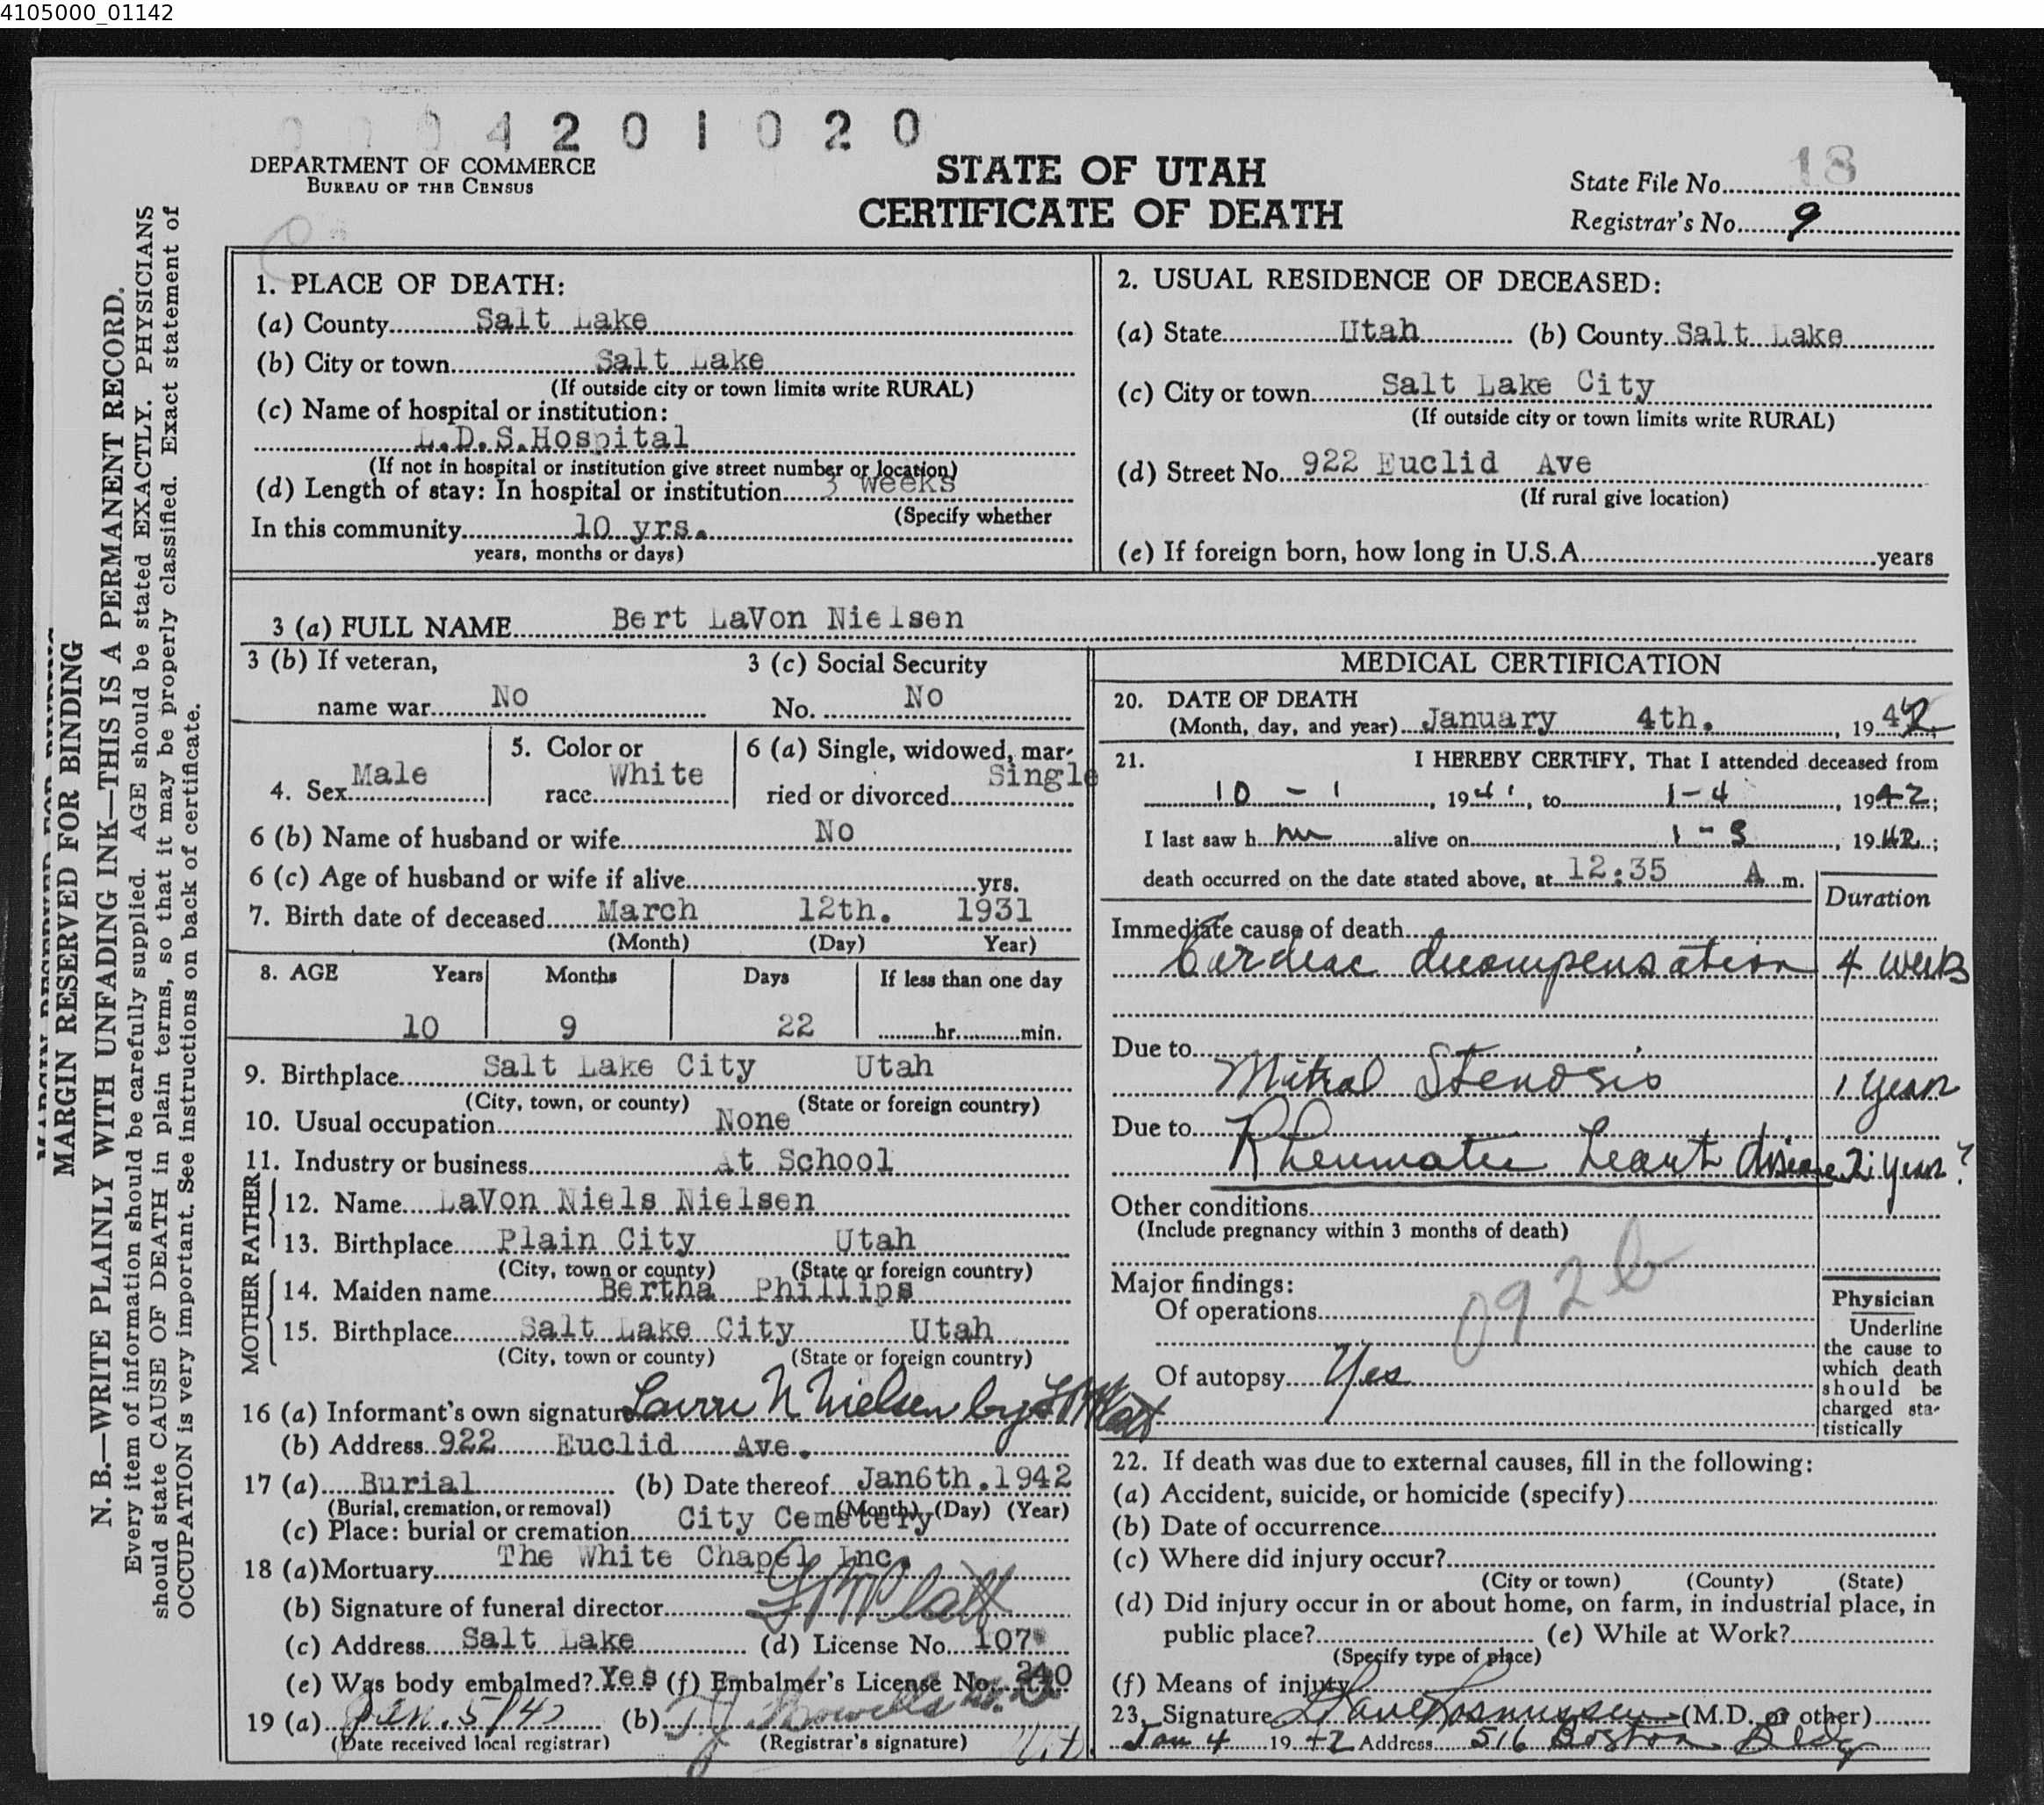 4105000_01142
0004201020
DEPARTMENT OF COMMERCE
BUREAU OF THE CENSUS
STATE OF UTAH
CERTIFICATE OF DEATH
State File No. 18
Registrar's No. 9
MARGIN RESERVED FOR BINDING
N. B.—WRITE PLAINLY WITH UNFADING INK—THIS IS A PERMANENT RECORD.
Every item of information should be carefully supplied. AGE should be stated EXACTLY. PHYSICIANS
should state CAUSE OF DEATH in plain terms, so that it may be properly classified. Exact statement of
OCCUPATION is very important. See instructions on back of certificate.
1. PLACE OF DEATH:
(a) County Salt Lake
(b) City or town Salt Lake
(If outside city or town limits write RURAL)
(c) Name of hospital or institution:
L.D.S.Hospital
(If not in hospital or institution give street number or location)
(d) Length of stay: In hospital or institution 3 weeks
(Specify whether
In this community 10 yrs.
years, months or days)
2. USUAL RESIDENCE OF DECEASED:
(a) State Utah (b) County Salt Lake
(c) City or town Salt Lake City
(If outside city or town limits write RURAL)
(d) Street No. 922 Euclid Ave
(If rural give location)
(e) If foreign born, how long in U.S.A. years
3 (a) FULL NAME Bert LaVon Nielsen
3 (b) If veteran,
name war No
3 (c) Social Security
No. No
4. Sex Male
5. Color or
race White
6 (a) Single, widowed, mar-
ried or divorced Single
6 (b) Name of husband or wife No
6 (c) Age of husband or wife if alive yrs.
7. Birth date of deceased March 12th. 1931
(Month) (Day) Year)
8. AGE Years Months Days If less than one day
10 9 22 hr. min.
9. Birthplace Salt Lake City Utah
(City, town, or county) (State or foreign country)
10. Usual occupation None
11. Industry or business At School
FATHER
12. Name LaVon Niels Nielsen
13. Birthplace Plain City Utah
(City, town or county) (State or foreign country)
MOTHER
14. Maiden name Bertha Phillips
15. Birthplace Salt Lake City Utah
(City, town or county) (State or foreign country)
16 (a) Informant's own signature N Nielsen by
(b) Address 922 Euclid Ave.
17 (a) Burial (b) Date thereof Jan6th.1942
(Burial, cremation, or removal) (Month) (Day) (Year)
(c) Place: burial or cremation City Cemetery
18 (a) Mortuary The White Chapel Inc.
(b) Signature of funeral director
(c) Address Salt Lake (d) License No. 107
(e) Was body embalmed? Yes (f) Embalmer's License No. 240
19 (a) Jan. 5/42 (b)
(Date received local registrar) (Registrar's signature)
MEDICAL CERTIFICATION
20. DATE OF DEATH
(Month, day, and year) January 4th. , 1942
21. I HEREBY CERTIFY, That I attended deceased from
10 - 1 , 1941, to 1-4 , 1942;
I last saw h im alive on 1-3 , 1942;
death occurred on the date stated above, at 12:35 A m.
Duration
Immediate cause of death
Cardiac decompensation 4 weeks
Due to
Mitral Stenosis 1 year
Due to
Rheumatic heart disease 2 year?
Other conditions
(Include pregnancy within 3 months of death)
Major findings:
Of operations
092b
Of autopsy Yes
Physician
Underline
the cause to
which death
should be
charged sta-
tistically
22. If death was due to external causes, fill in the following:
(a) Accident, suicide, or homicide (specify)
(b) Date of occurrence
(c) Where did injury occur?
(City or town) (County) (State)
(d) Did injury occur in or about home, on farm, in industrial place, in
public place? (e) While at Work?
(Specify type of place)
(f) Means of injury
23. Signature Rasmussen (M.D. or other)
Jan 4 1942 Address 516 Boston Bldg